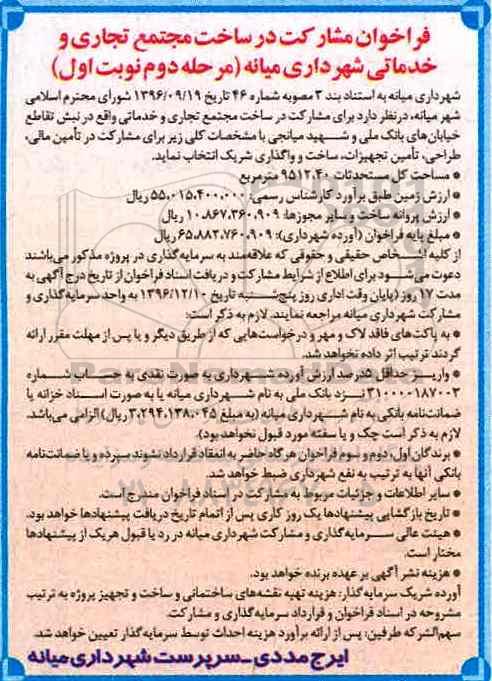 فراخوان مشارکت در ساخت مجتمع تجاری و
خدماتی شهرداری میانه (مرحله دوم نوبت اول)
شهرداری میانه به استناد بند ۳ مصوبه شماره ۴۶ تاریخ ۱۳۹۶/۰۹/۱۹ شورای محترم اسلامی
شهر میانه، در نظر دارد برای مشارکت در ساخت مجتمع تجاری و خدماتی واقع در نبش تقاطع
خیابان‌های بانک ملی و شهید میانجی با مشخصات کلی زیر برای مشارکت در تأمین مالی،
طراحی، تأمین تجهیزات، ساخت و واگذاری شریک انتخاب نماید.
• مساحت کل مستحدثات ۹۵۱۲،۴۰ مترمربع
• ارزش زمین طبق برآورد کارشناس رسمی: ۵۵،۰۱۵،۴۰۰،۰۰۰ ریال
• ارزش پروانه ساخت و سایر مجوزها: ۱۰،۸۶۷،۳۶۰،۹۰۹ ریال
• مبلغ پایه فراخوان (آورده شهرداری): ۶۵،۸۸۲،۷۶۰،۹۰۹ ریال
از کلیه اشخاص حقیقی و حقوقی که علاقه‌مند به سرمایه‌گذاری در پروژه مذکور می‌باشند
دعوت می‌شود برای اطلاع از شرایط مشارکت و دریافت اسناد فراخوان از تاریخ درج آگهی به
مدت ۱۷ روز (پایان وقت اداری روز پنج‌شنبه تاریخ ۱۳۹۶/۱۲/۱۰ به واحد سرمایه‌گذاری و
مشارکت شهرداری میانه مراجعه نمایند. لازم به ذکر است:
• به پاکت‌های فاقد لاک و مهر و درخواست‌هایی که از طریق دیگر و یا پس از مهلت مقرر ارائه
گردند ترتیب اثر داده نخواهد شد.
• واریز حداقل ۵درصد ارزش آورده شهرداری به صورت نقدی به حساب شماره
۳۱۰۰۰۰۱۸۷۰۰۳ نزد بانک ملی به نام شهرداری میانه یا به صورت اسناد خزانه یا
ضمانت‌نامه بانکی به نام شهرداری میانه (به مبلغ ۳،۲۹۴،۱۳۸،۰۴۵ ریال) الزامی می‌باشد.
لازم به ذکر است چک و یا سفته مورد قبول نخواهد بود).
• برندگان اول، دوم و سوم فراخوان هرگاه حاضر به انعقاد قرارداد نشوند سپرده و یا ضمانت‌نامه
بانکی آنها به ترتیب به نفع شهرداری ضبط خواهد شد.
• سایر اطلاعات و جزئیات مربوط به مشارکت در اسناد فراخوان مندرج است.
• تاریخ بازگشایی پیشنهادها یک روز کاری پس از اتمام تاریخ دریافت پیشنهادها خواهد بود.
• هیئت عالی سرمایه‌گذاری و مشارکت شهرداری میانه در رد یا قبول هریک از پیشنهادها
مختار است.
• هزینه نشر آگهی بر عهده برنده خواهد بود.
آورده شریک سرمایه‌گذار: هزینه تهیه نقشه‌های ساختمانی و ساخت و تجهیز پروژه به ترتیب
مشروحه در اسناد فراخوان و قرارداد سرمایه‌گذاری و مشارکت.
سهم‌الشرکه طرفین: پس از ارائه برآورد هزینه احداث توسط سرمایه‌گذار تعیین خواهد شد.
ایرج مددی - سرپرست شهرداری میانه